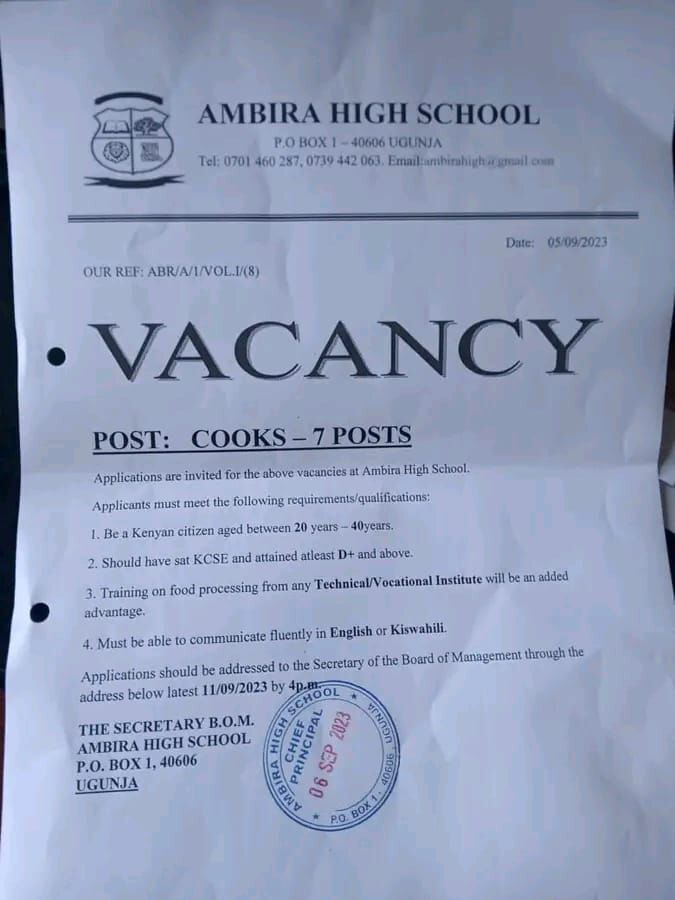 AMBIRA HIGH SCHOOL
P.O BOX 1 – 40606 UGUNJA
Tel: 0701 460 287, 0739 442 063. Email:ambirahigh@gmail.com
Date: 05/09/2023
OUR REF: ABR/A/1/VOL.I/(8)
VACANCY
POST: COOKS – 7 POSTS
Applications are invited for the above vacancies at Ambira High School.
Applicants must meet the following requirements/qualifications:
1. Be a Kenyan citizen aged between 20 years – 40years.
2. Should have sat KCSE and attained atleast D+ and above.
3. Training on food processing from any Technical/Vocational Institute will be an added
advantage.
4. Must be able to communicate fluently in English or Kiswahili.
Applications should be addressed to the Secretary of the Board of Management through the
address below latest 11/09/2023 by 4p.m.
THE SECRETARY B.O.M.
AMBIRA HIGH SCHOOL
P.O. BOX 1, 40606
UGUNJA
AMBIRA HIGH SCHOOL
CHIEF
PRINCIPAL
06 SEP 2023
P.O. BOX 1 - 40606, UGUNJA